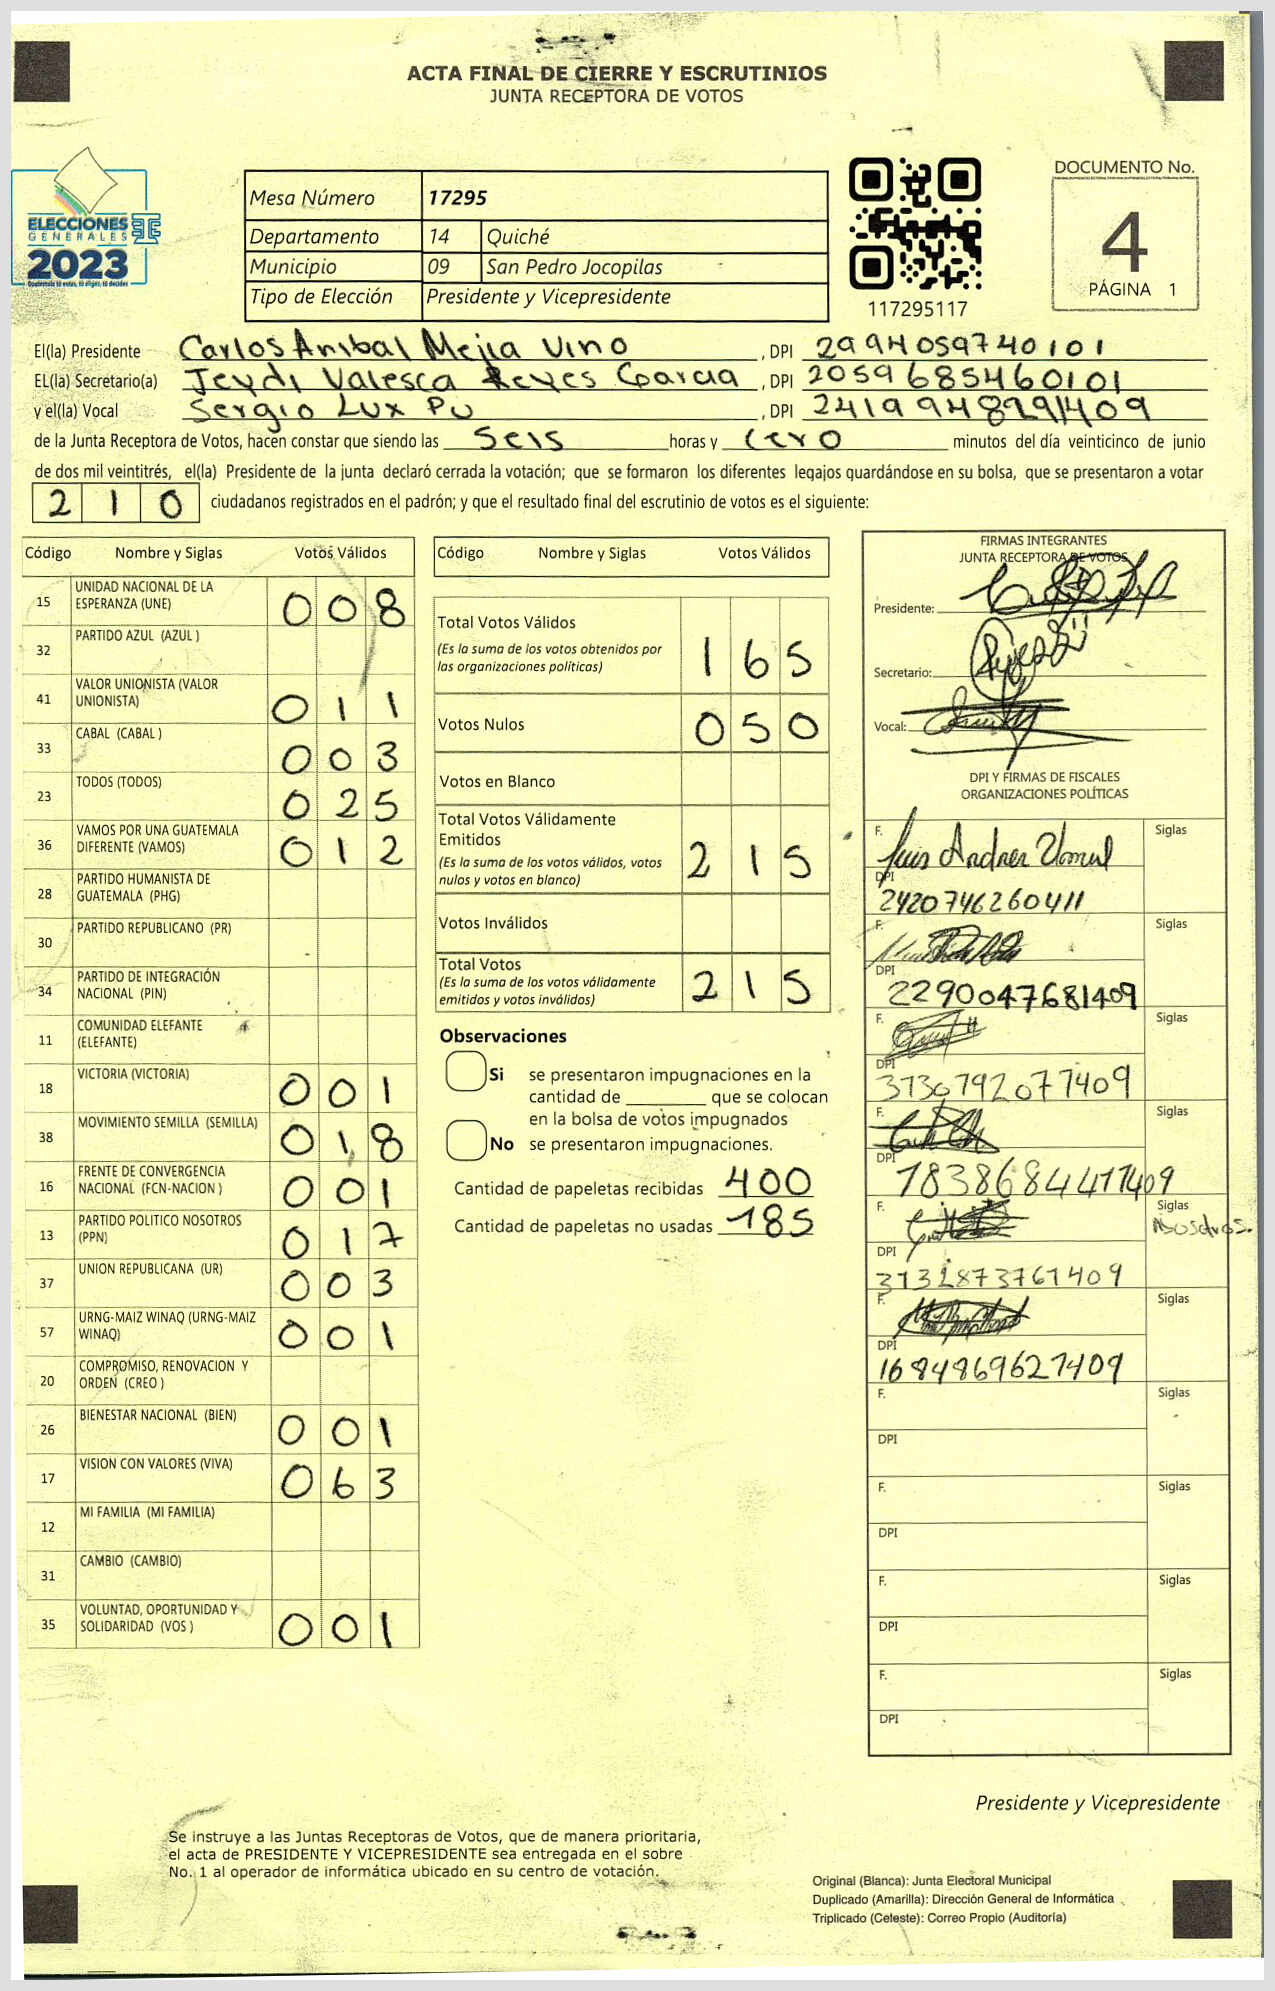 ACTA FINAL DE CIERRE Y ESCRUTINIOS
JUNTA RECEPTORA DE VOTOS
ELECCIONES
GENERALES
2023
Mesa Número 17295
Departamento 14 Quiché
Municipio 09 San Pedro Jocopilas
Tipo de Elección Presidente y Vicepresidente
117295117
DOCUMENTO No.
4
PÁGINA 1
El(la) Presidente Carlos Anibal Mejia Vino, DPI 2994059740101
EL(la) Secretario(a) Jeydi Valesca Reyes Garcia, DPI 2059685460101
y el(la) Vocal Sergio Lux Pu, DPI 2419948291409
de la Junta Receptora de Votos, hacen constar que siendo las seis horas y cero minutos del día veinticinco de junio
de dos mil veintitrés, el(la) Presidente de la junta declaró cerrada la votación; que se formaron los diferentes legajos guardándose en su bolsa, que se presentaron a votar
210 ciudadanos registrados en el padrón; y que el resultado final del escrutinio de votos es el siguiente:
Código Nombre y Siglas Votos Válidos
15 UNIDAD NACIONAL DE LA ESPERANZA (UNE) 008
32 PARTIDO AZUL (AZUL )
41 VALOR UNIONISTA (VALOR UNIONISTA) 011
33 CABAL (CABAL ) 003
23 TODOS (TODOS) 025
36 VAMOS POR UNA GUATEMALA DIFERENTE (VAMOS) 012
28 PARTIDO HUMANISTA DE GUATEMALA (PHG)
30 PARTIDO REPUBLICANO (PR)
34 PARTIDO DE INTEGRACIÓN NACIONAL (PIN)
11 COMUNIDAD ELEFANTE (ELEFANTE)
18 VICTORIA (VICTORIA) 001
38 MOVIMIENTO SEMILLA (SEMILLA) 018
16 FRENTE DE CONVERGENCIA NACIONAL (FCN-NACION ) 001
13 PARTIDO POLITICO NOSOTROS (PPN) 017
37 UNION REPUBLICANA (UR) 003
57 URNG-MAIZ WINAQ (URNG-MAIZ WINAQ) 001
20 COMPROMISO, RENOVACION Y ORDEN (CREO )
26 BIENESTAR NACIONAL (BIEN) 001
17 VISION CON VALORES (VIVA) 063
12 MI FAMILIA (MI FAMILIA)
31 CAMBIO (CAMBIO)
35 VOLUNTAD, OPORTUNIDAD Y SOLIDARIDAD (VOS ) 001
Código Nombre y Siglas Votos Válidos
Total Votos Válidos 165
(Es la suma de los votos obtenidos por
las organizaciones políticas)
Votos Nulos 050
Votos en Blanco
Total Votos Válidamente
Emitidos 215
(Es la suma de los votos válidos, votos
nulos y votos en blanco)
Votos Inválidos
Total Votos 215
(Es la suma de los votos válidamente
emitidos y votos inválidos)
Observaciones
Si se presentaron impugnaciones en la
cantidad de ________ que se colocan
en la bolsa de votos impugnados
No se presentaron impugnaciones.
Cantidad de papeletas recibidas 400
Cantidad de papeletas no usadas 185
FIRMAS INTEGRANTES
JUNTA RECEPTORA DE VOTOS
Presidente:
Secretario:
Vocal:
DPI Y FIRMAS DE FISCALES
ORGANIZACIONES POLÍTICAS
F. Siglas
DPI
2420746260411
F. Siglas
DPI
2290047681409
F. Siglas
DPI
3730792077409
F. Siglas
DPI
1838684411409
F. Siglas
Nosotros.
DPI
3132873761409
F. Siglas
DPI
1684869627409
F. Siglas
DPI
F. Siglas
DPI
F. Siglas
DPI
F. Siglas
DPI
Presidente y Vicepresidente
Se instruye a las Juntas Receptoras de Votos, que de manera prioritaria,
el acta de PRESIDENTE Y VICEPRESIDENTE sea entregada en el sobre
No. 1 al operador de informática ubicado en su centro de votación.
Original (Blanca): Junta Electoral Municipal
Duplicado (Amarilla): Dirección General de Informática
Triplicado (Celeste): Correo Propio (Auditoría)